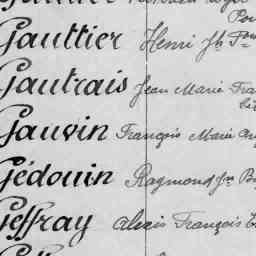 Gauttier Henri Jh
Gautrais Jean Marie
Gauvin François Marie
Gédouin Raymond Jn
Geffray Alexis François